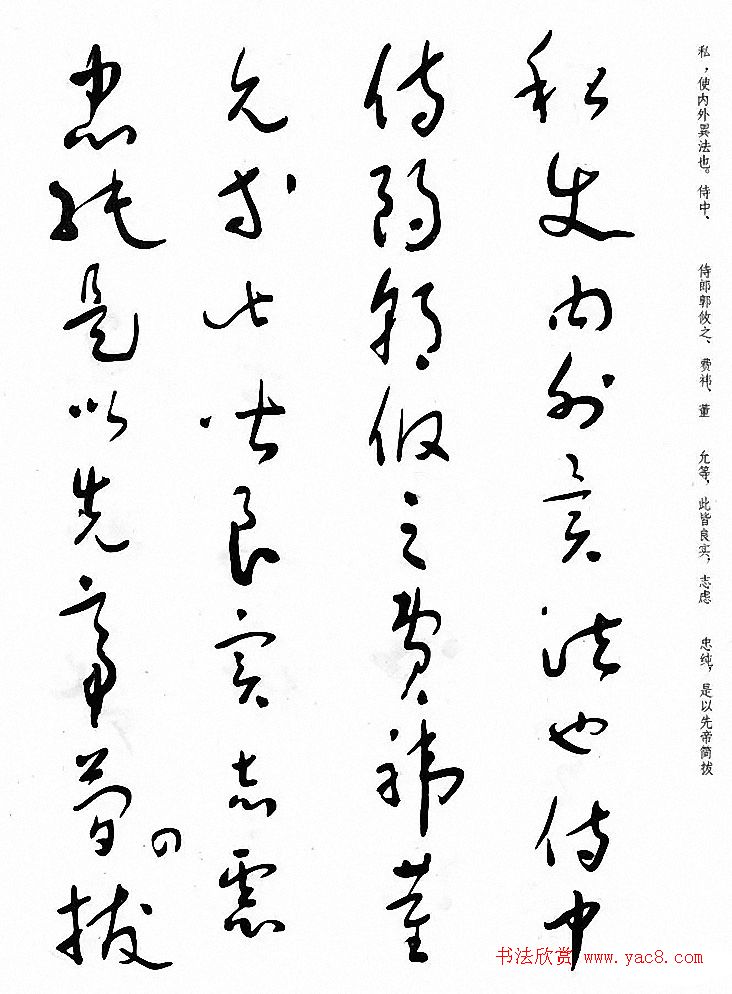 私，使内外異法也。侍中、 侍郎郭攸之、费祎、董 允等，此皆良实，志虑 忠纯，是以先帝简拔
私使内外異法也侍中
侍郎郭攸之費禕董
允等此皆良實志慮
忠純是以先帝簡拔
书法欣赏 www.yac8.com